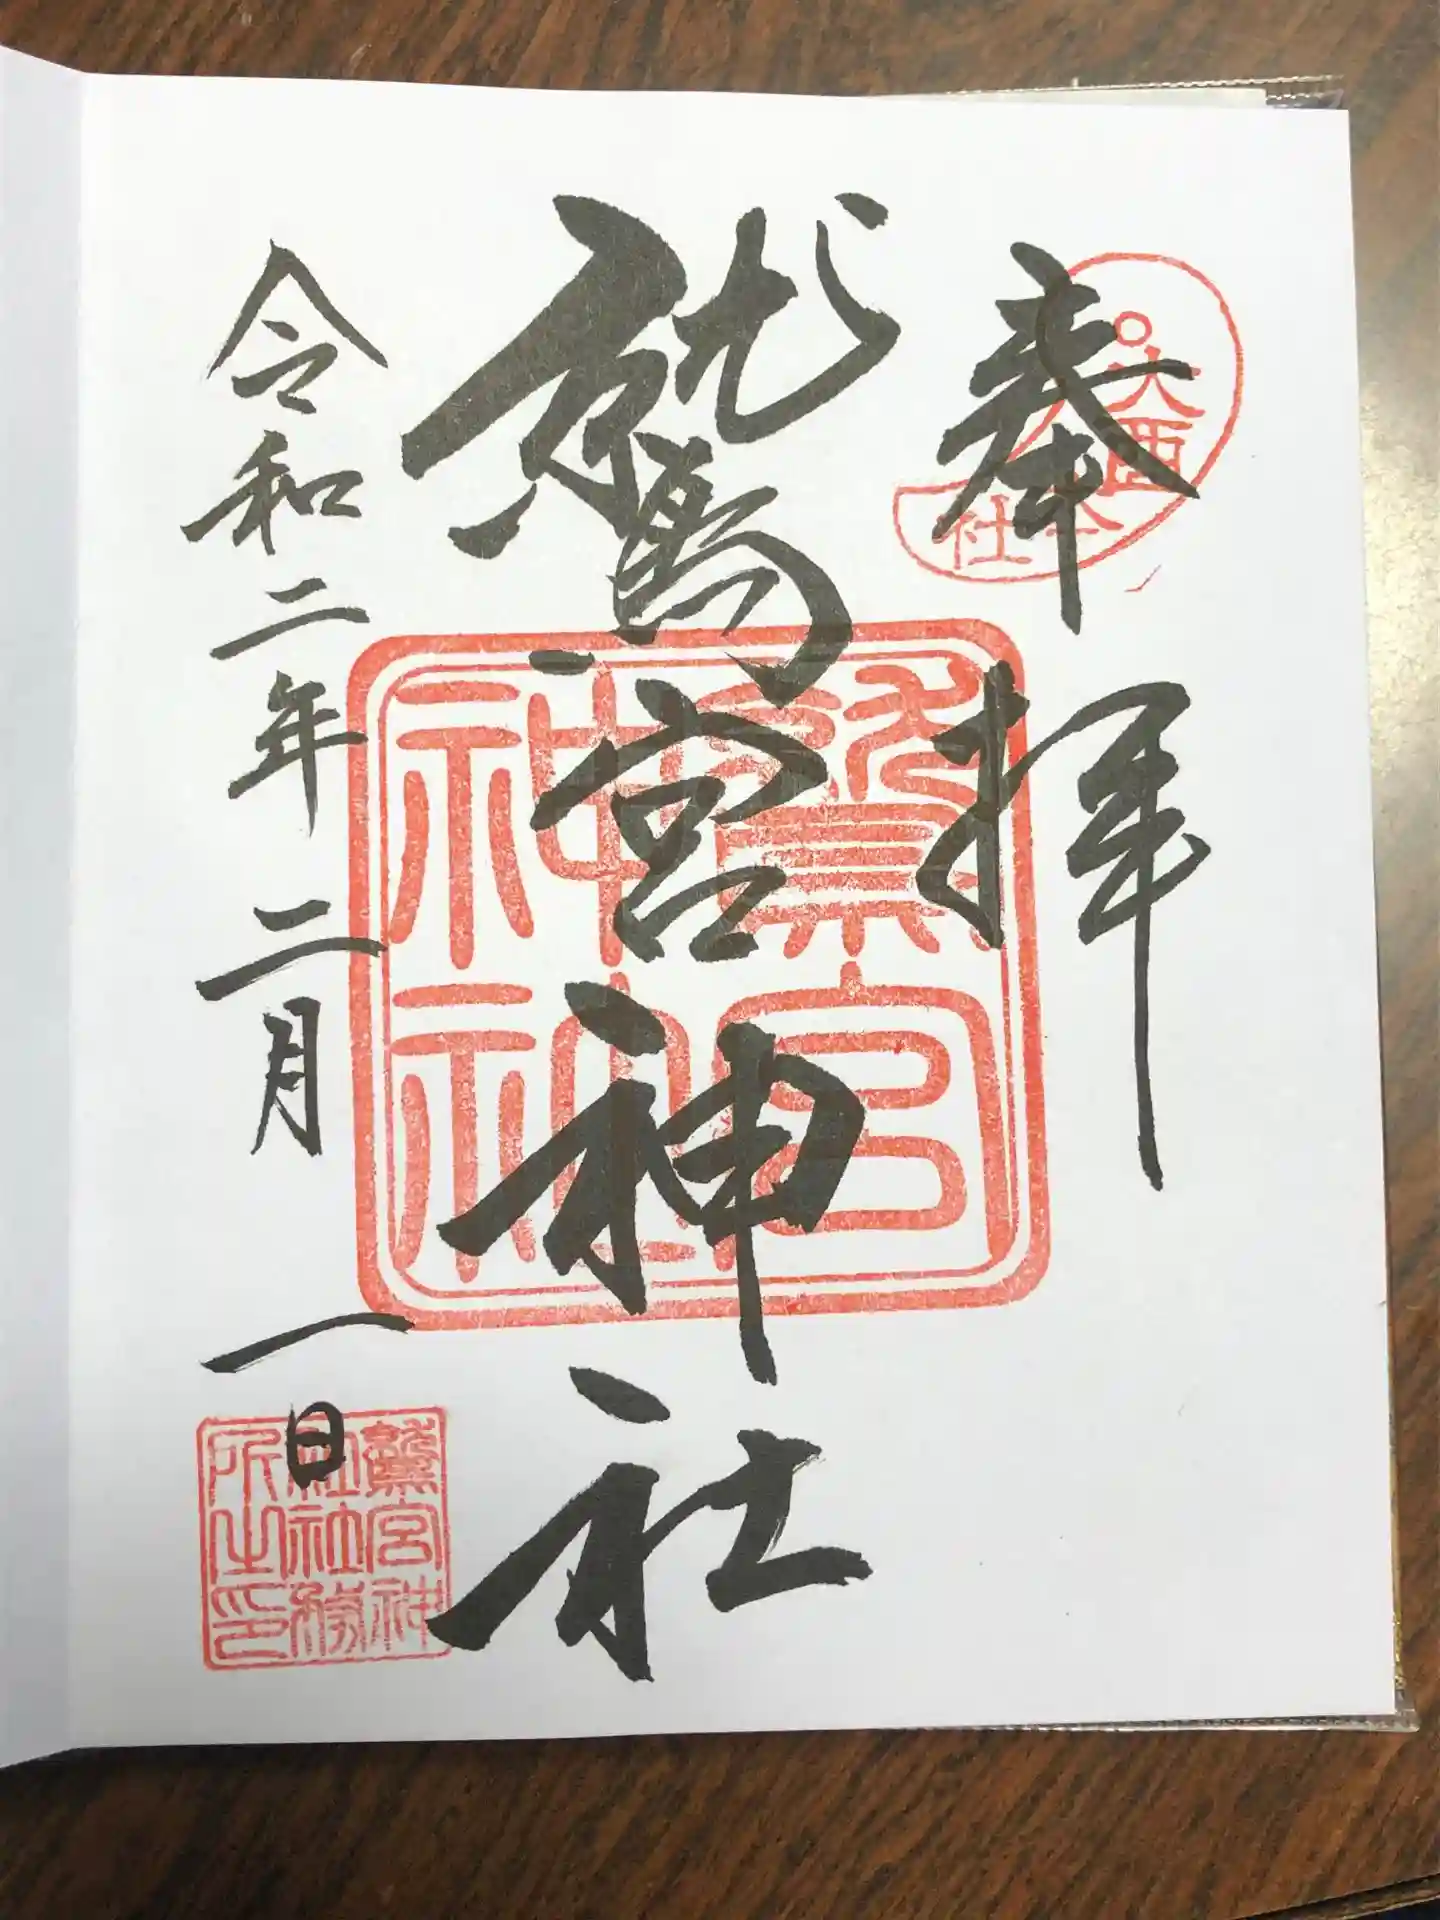 奉拝
大酉
社
鷲宮神社
鷲宮神社
令和二年二月一日
鷲宮神
社社務
所之印